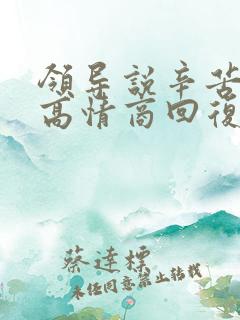 領导說辛苦
高情商回復
蔡達標
未任同意禁止转载